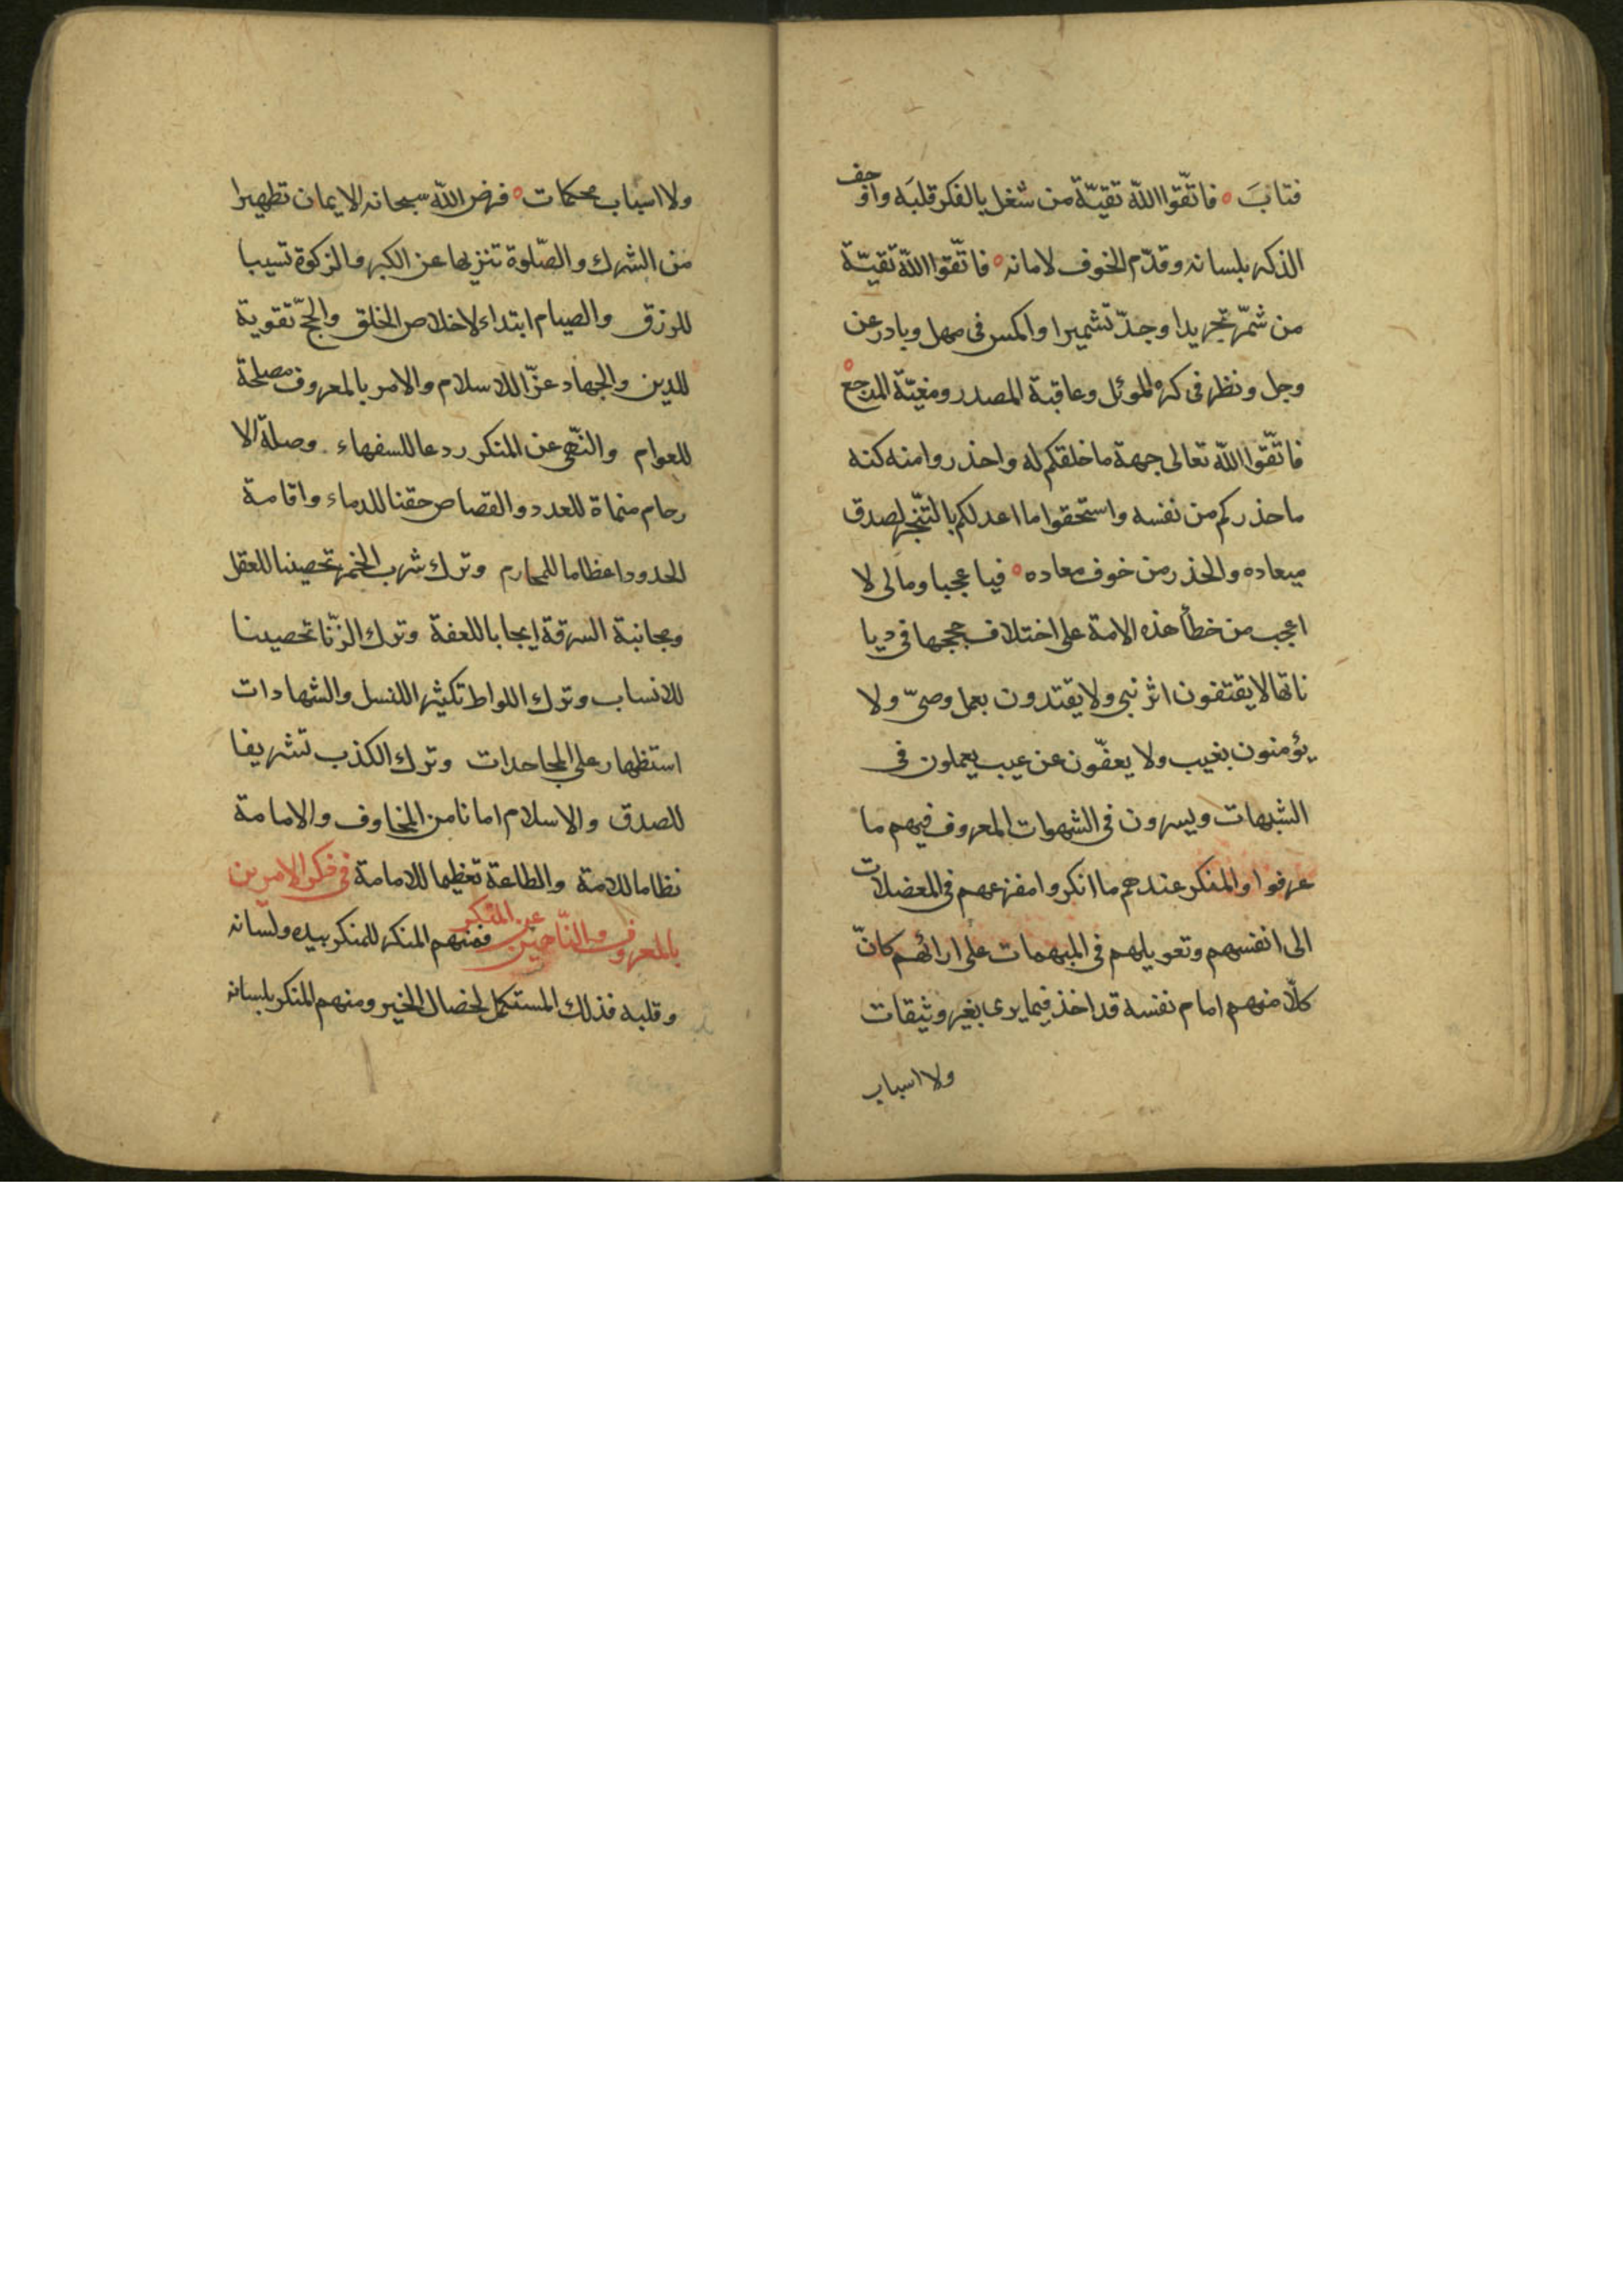 فتابَ ه فاتّقوا الله تقيّة من شغل بالفكر قلبَه واوجف
الذكر بلسانه وقدّم الخوف لامانه ه فاتّقوا الله تقيّة
من شمّر تجريدا وجدّ تشميرا واكمس فى مهل وبادر عن
وجل ونظر فى كره الموئل وعاقبة المصدر ومغبّة المرجع ه
فاتّقوا الله تعالى جهة ما خلقكم له واحذروا منه كنه
ما حذركم من نفسه واستحقوا ما اعد لكم بالتّنجّز لصدق
ميعاده والحذر من خوف معاده ه فيا عجبا ومالى لا
اعجب من خطأ هذه الامة على اختلاف حججها فى ديا
ناتها لا يقتفون اثر نبى ولا يقتدون بعمل وصىّ ولا
يؤمنون بغيب ولا يعفّون عن عيب يعملون فى
الشبهات ويسرون فى الشهوات المعروف فيهم ما
عرفوا والمنكر عندهم ما انكروا مفزعهم فى المعضلات
الى انفسهم وتعويلهم فى المبهمات على ارائهم كانّ
كلّا منهم امام نفسه قد اخذ فيما يرى بغير وثيقات
ولا اسباب
ولا اسباب محكمات ه فرض الله سبحانه الايمان تطهيرا
من الشرك والصّلوة تنزيها عن الكبر والزكوة تسبيبا
للرزق والصيام ابتداء لاخلاص الخلق والحجّ تقوية
للدين والجهاد عزّا للاسلام والامر بالمعروف مصلحة
للعوام والنّهى عن المنكر ردعا للسفهاء وصلة الا
رحام منماة للعدد والقصاص حقنا للدماء واقامة
الحدود اعظاما للمحارم وترك شرب الخمر تحصينا للعقل
ومجانبة السرقة ايجابا للعفة وترك الزّنا تحصينا
للانساب وترك اللواط تكثيرا للنسل والشهادات
استظهار على المجاحدات وترك الكذب تشريفا
للصدق والاسلام امانا من المخاوف والامامة
نظاما للامة والطاعة تعظيما للامامة فى ذكر الامرين
بالمعروف والنّاهين عن المنكر فمنهم المنكر للمنكر بيده ولسانه
وقلبه فذلك المستكمل لخصال الخير ومنهم المنكر بلسانه